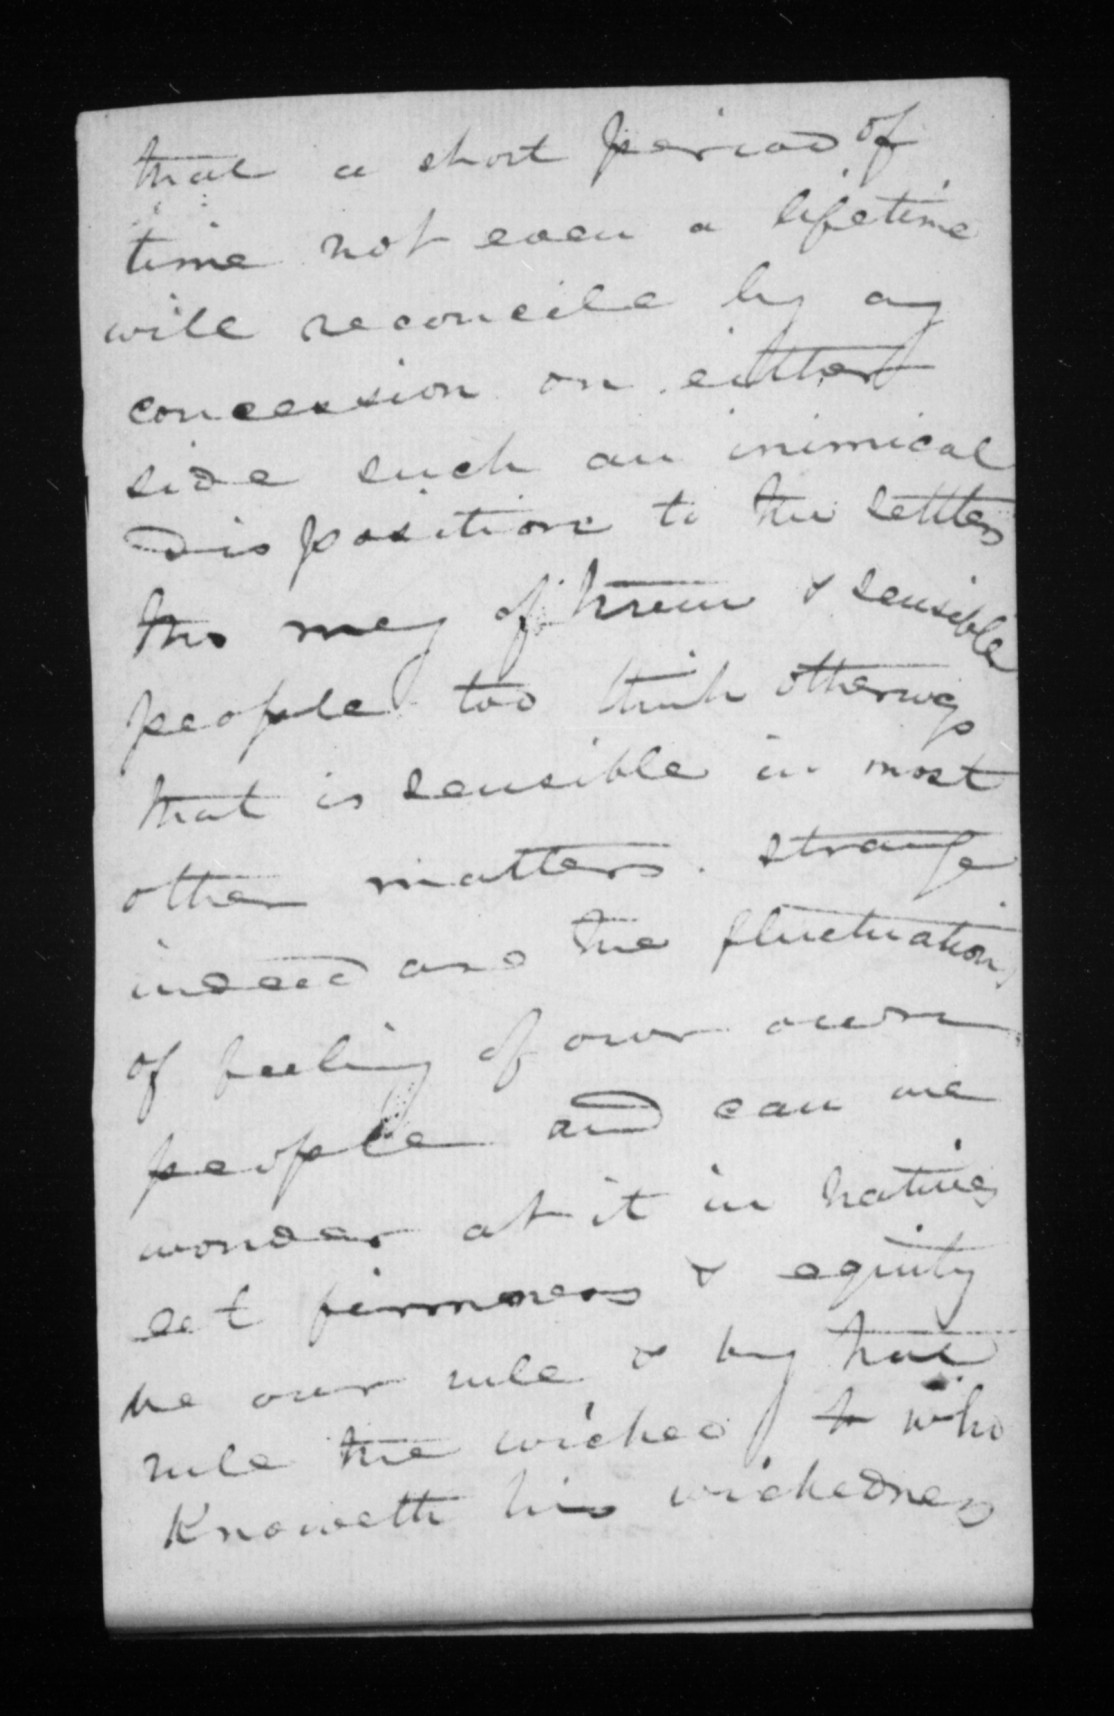 that a short period of
time not even a lifetime
will reconcile by any
concession on either
side such an inimical
disposition to the settlers
tho many of them & sensible
people too think otherwise
that is sensible in most
other matters. strange
indeed are the fluctuations
of feeling of our own
people and can we
wonder at it in natives
let firmness & equity
be our rule & by that
rule the wicked to who
Knoweth his wickedness